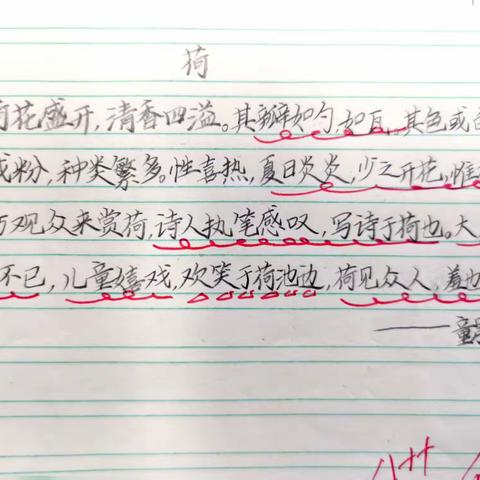 荷
荷花盛开,清香四溢。其瓣如勺,如瓦。其色或白
或粉,种类繁多。性喜热,夏日炎炎,少之开花,惟
观众来赏荷,诗人执笔感叹,写诗于荷也。大
不已,儿童嬉戏,欢笑于荷池边,荷见众人,羞也
——童